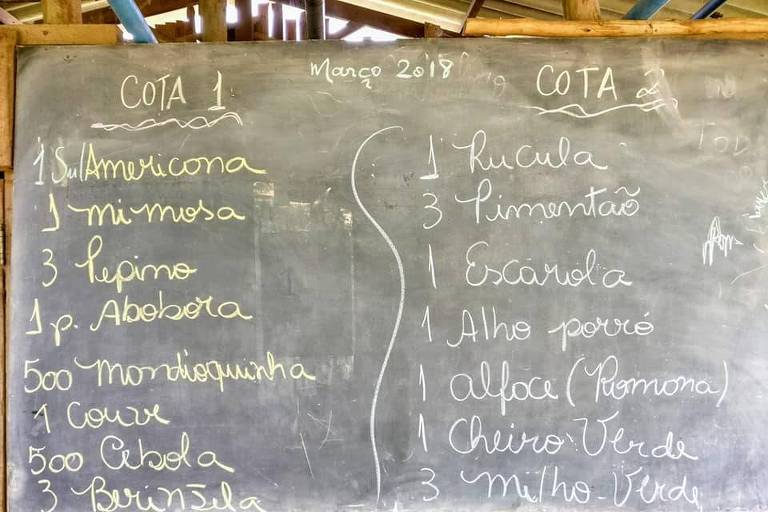 Março 2018
COTA 1
1 Sul Americona
1 mimosa
3 Pepino
1 p. Abobora
500 Mondioquinha
1 Couve
500 Cebola
3 Berinsela
COTA 2
1 Rucula
3 Pimentão
1 Escarola
1 Alho porró
1 alface (Romona)
1 Cheiro Verde
3 Milho-Verde